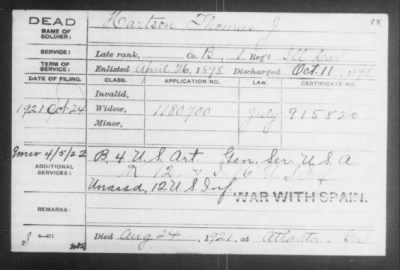 DEAD
NAME OF SOLDIER: Hartson Thomas J
SERVICE: Late rank, Co. B, 1 Reg't Ill Cav
TERM OF SERVICE: Enlisted April 26, 1898, Discharged Oct. 11, 1898
DATE OF FILING. CLASS. APPLICATION NO. LAW. CERTIFICATE NO.
Invalid,
1921 Oct 24 Widow, 1180700 July 915820
Minor,
4/5/22 B, 4 U.S. Art. Gen. Ser. U.S.A
ADDITIONAL SERVICES: 12
Unassd, 12 U.S. Inf WAR WITH SPAIN.
REMARKS:
Died Aug 24, 1921, at Atlanta